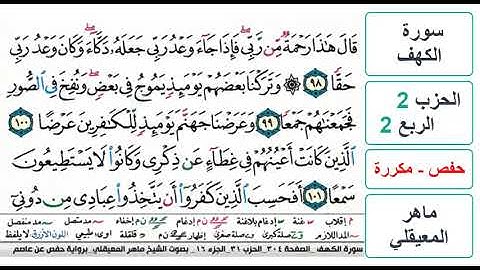 قَالَ هَٰذَا رَحْمَةٌ مِّن رَّبِّي ۖ فَإِذَا جَآءَ وَعْدُ رَبِّي جَعَلَهُۥ دَكَّآءَ ۖ وَكَانَ وَعْدُ رَبِّي
حَقًّا ٩٨ ۞ وَتَرَكْنَا بَعْضَهُمْ يَوْمَئِذٍ يَمُوجُ فِي بَعْضٍ ۖ وَنُفِخَ فِي ٱلصُّورِ
فَجَمَعْنَٰهُمْ جَمْعًا ٩٩ وَعَرَضْنَا جَهَنَّمَ يَوْمَئِذٍ لِّلْكَٰفِرِينَ عَرْضًا ١٠٠
ٱلَّذِينَ كَانَتْ أَعْيُنُهُمْ فِي غِطَآءٍ عَن ذِكْرِي وَكَانُوا۟ لَا يَسْتَطِيعُونَ
سَمْعًا ١٠١ أَفَحَسِبَ ٱلَّذِينَ كَفَرُوٓا۟ أَن يَتَّخِذُوا۟ عِبَادِي مِن دُونِيٓ
سورة الكهف، الصفحة ٣٠٤ الحزب ٣١ الجزء ١٦ بصوت الشيخ ماهر المعيقلي برواية حفص عن عاصم
سورة
الكهف
الحزب 2
الربع 2
حفص - مكررة
ماهر
المعيقلي